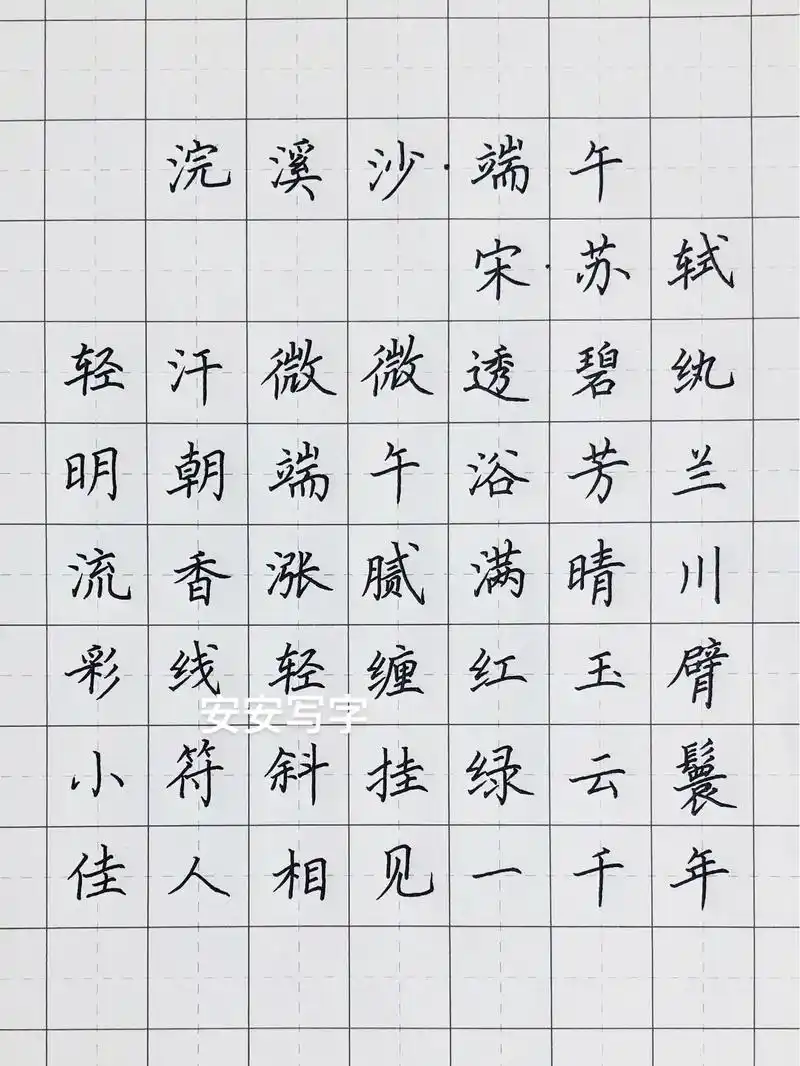 浣溪沙·端午
宋·苏轼
轻汗微微透碧纨
明朝端午浴芳兰
流香涨腻满晴川
彩线轻缠红玉臂
安安写字
小符斜挂绿云鬟
佳人相见一千年